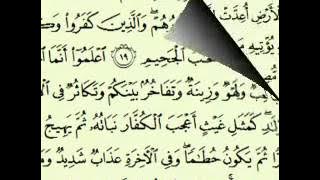 هُمْ ۖ وَالَّذِينَ كَفَرُوا وَكَ
الْجَحِيمِ ۝١٩ اعْلَمُوا أَنَّمَا
وَلَهْوٌ وَزِينَةٌ وَتَفَاخُرٌ بَيْنَكُمْ وَتَكَاثُرٌ فِي ال
كَمَثَلِ غَيْثٍ أَعْجَبَ الْكُفَّارَ نَبَاتُهُ ثُمَّ يَهِيجُ
ثُمَّ يَكُونُ حُطَامًا ۖ وَفِي الْآخِرَةِ عَذَابٌ شَدِيدٌ وَمَ